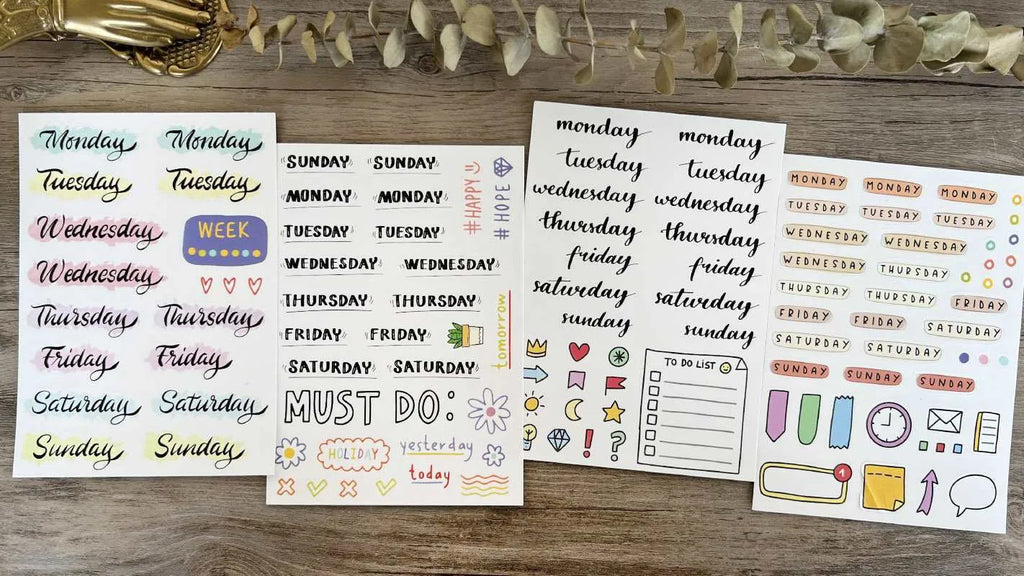 Monday Monday
Tuesday Tuesday
Wednesday
WEEK
Wednesday
Thursday Thursday
Friday Friday
Saturday Saturday
Sunday Sunday
SUNDAY SUNDAY
MONDAY MONDAY
TUESDAY TUESDAY
WEDNESDAY WEDNESDAY
THURSDAY THURSDAY
FRIDAY FRIDAY
SATURDAY SATURDAY
#HAPPY
#HOPE
tomorrow
MUST DO:
HOLIDAY
yesterday
today
monday monday
tuesday tuesday
wednesday wednesday
thursday thursday
friday friday
saturday saturday
sunday sunday
TO DO LIST
! ?
MONDAY MONDAY MONDAY
TUESDAY TUESDAY TUESDAY
WEDNESDAY WEDNESDAY
WEDNESDAY THURSDAY
THURSDAY THURSDAY FRIDAY
FRIDAY FRIDAY SATURDAY
SATURDAY SATURDAY
SUNDAY SUNDAY SUNDAY
1